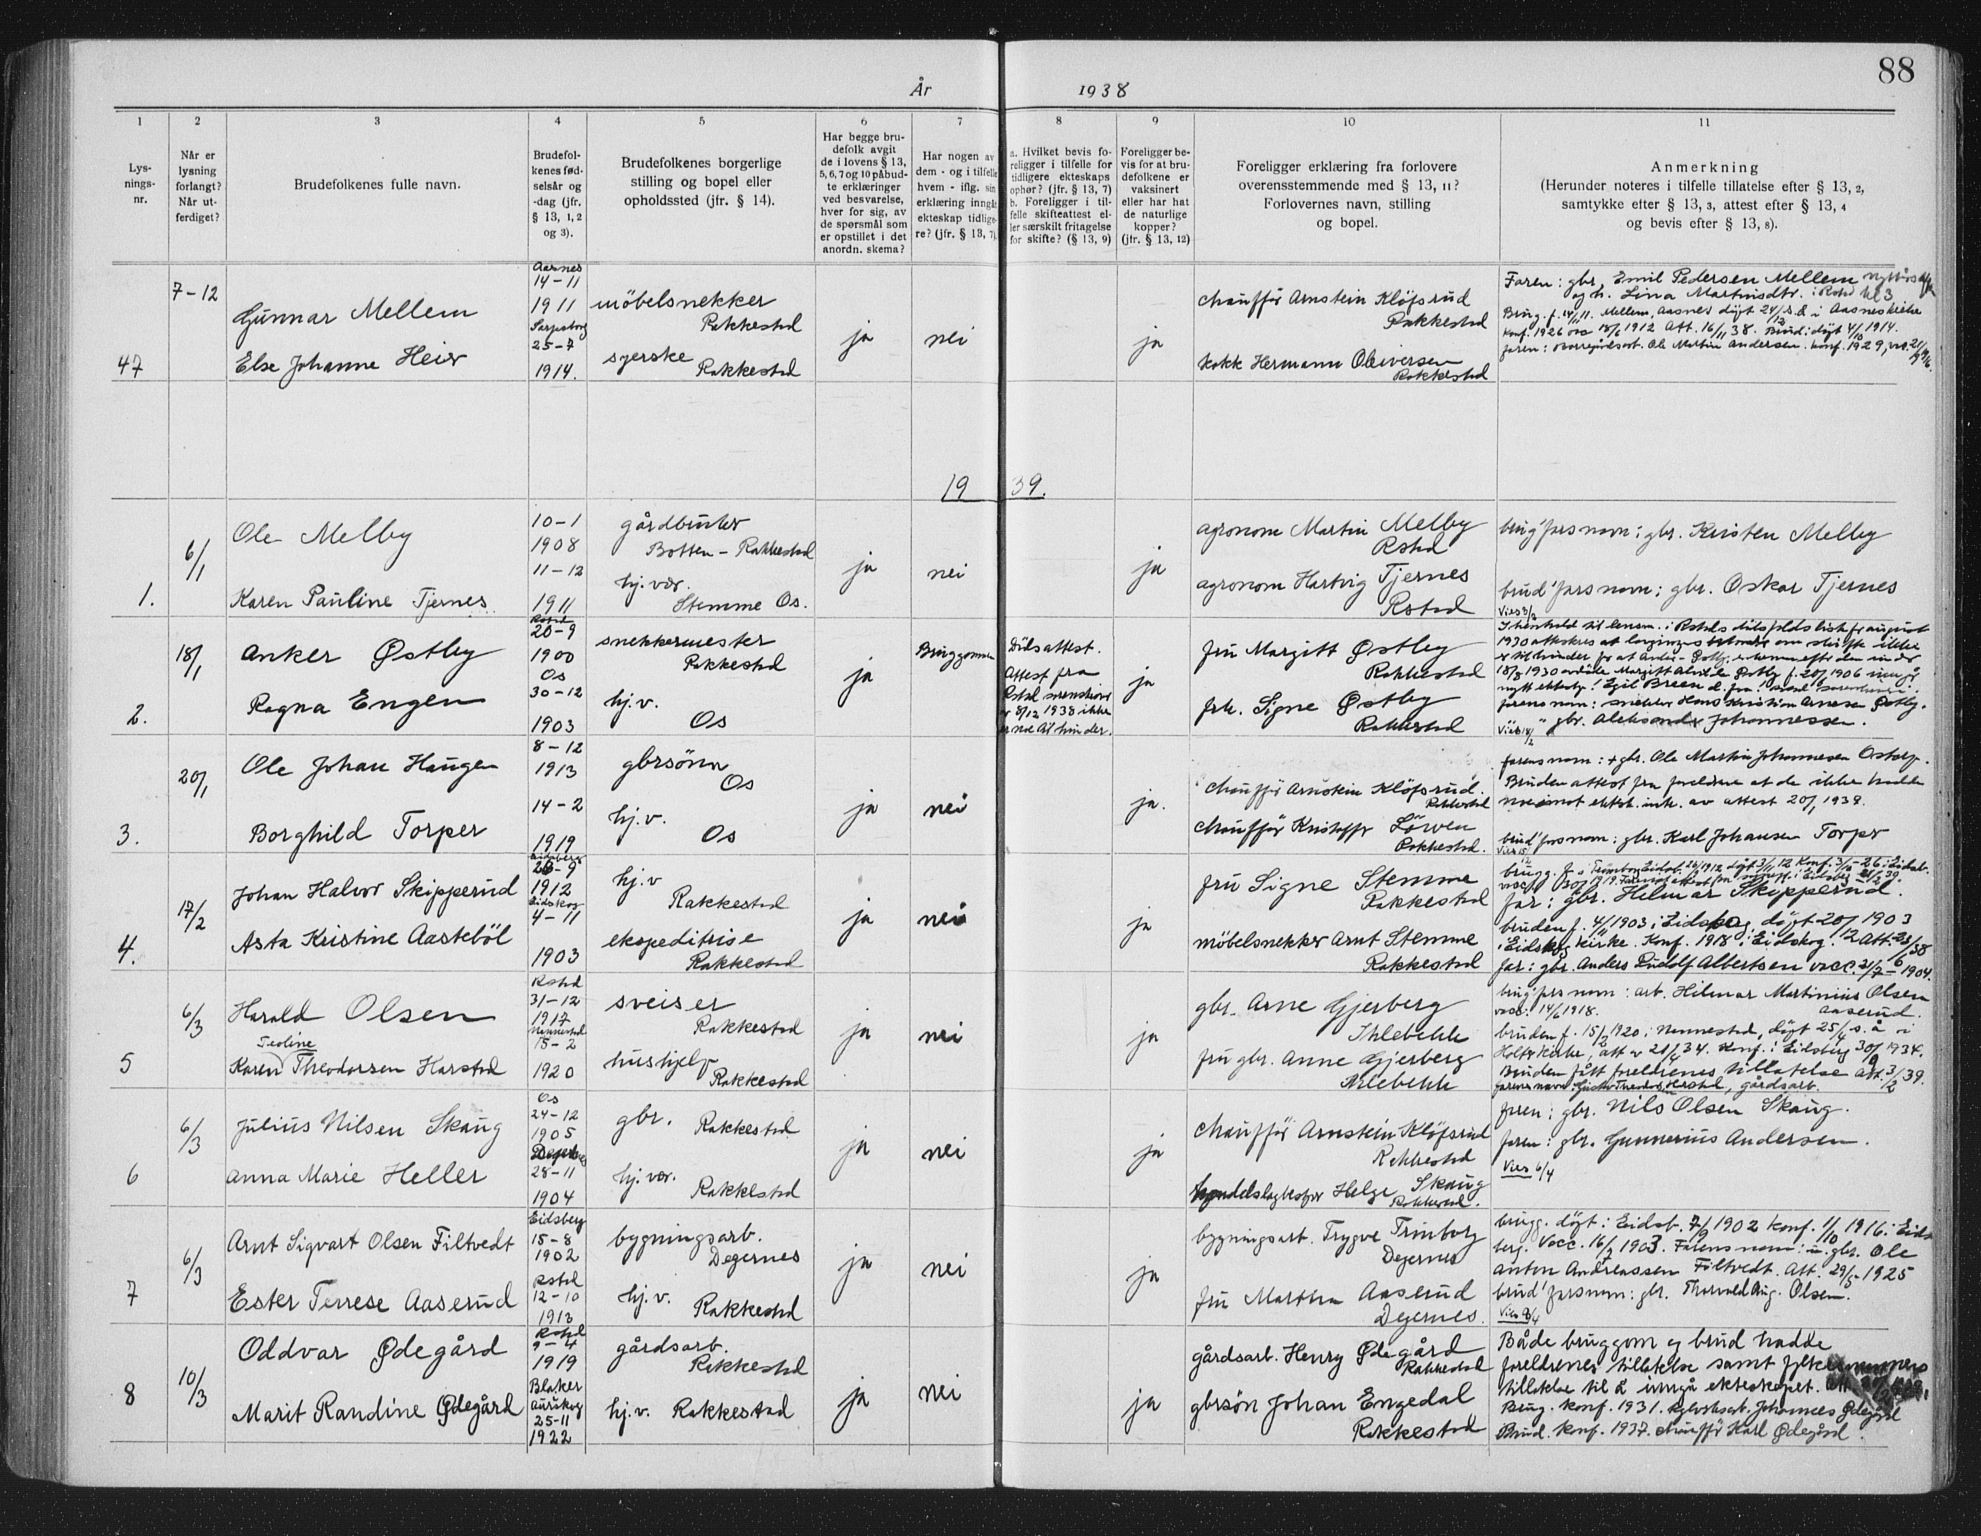 88
År 1938
1 2 3 4 5 6 7 8 9 10 11
Lys-
nings-
nr.
Når er
lysning
forlangt?
Når ut-
ferdiget?
Brudefolkenes fulle navn.
Brudefol-
kenes fød-
selsår og
-dag (jfr.
§ 13, 1, 2
og 3).
Brudefolkenes borgerlige
stilling og bopel eller
opholdssted (jfr. § 14).
Har begge bru-
defolk avgit
de i lovens § 13,
5, 6, 7 og 10 påbud-
te erklæringer
ved besvarelse,
hver for sig, av
de spørsmål som
er opstillet i det
anordn. skema?
Har nogen av
dem - og i tilfelle
hvem - iflg. sin
erklæring inngåt
ekteskap tidlige-
re? (jfr. § 13, 7).
a. Hvilket bevis fo-
religger i tilfelle for
tidligere ekteskaps
ophør? (jfr. § 13, 7)
b. Foreligger i til-
felle skifteattest el-
ler særskilt fritagelse
for skifte? (§ 13, 9)
Foreligger be-
vis for at bru-
defolkene er
vaksinert
eller har hat
de naturlige
kopper?
(jfr. § 13, 12)
Foreligger erklæring fra forlovere
overensstemmende med § 13, 11?
Forlovernes navn, stilling
og bopel.
Anmerkning
(Herunder noteres i tilfelle tillatelse efter § 13, 2,
samtykke efter § 13, 3, attest efter § 13, 4
og bevis efter § 13, 8).
47
7-12
Gunnar Mellem
Else Johanne Heier
Aasnes
14-11
1911
Sarpsborg
25-7
1914.
möbelsnekker
Rakkestad
syerske
Rakkestad
ja
nei
ja
chauffør Arnstein Kløfsrud
Rakkestad
kokk Hermann Oliversen
Rakkestad
Faren: gbr. Emil Pedersen Mellem
og h. Lina Martinsdtr. i Rstad
Brug. f. 14/11 11. Mellem, Aasnes døpt 24/12 s.å. i Aasnes kirke
konf. 1926 vac 18/6 1912 Att. 16/11 38. Brud: døpt 4/10 1914.
19 39.
1.
6/1
Ole Melby
Karen Pauline Tjernes
10-1
1908
11-12
1911
gårdbruker
Botten - Rakkestad
hj. vær.
Stemme Os.
ja
nei
ja
agronom Martin Melby
Rstad
agronom Hartvig Tjernes
Rstad
brug' fars navn: gbr. Kristen Melby
brud' fars navn: gbr. Oskar Tjernes
2.
18/1
Anker Østby
Ragna Engen
Rstad
20-9
1900
Os
30-12
1903
snekkermester
Rakkestad
hj. v.
Os
ja
Bruggommen
Dødsattest.
Attest fra
Rstad sorenskriver
av 8/12 1938 ikke
er noe til hinder.
ja
fru Margitt Østby
Rakkestad
frk. Signe Østby
Rakkestad
farens navn: snekker Hans Kristian Arnesen Østby.
" gbr. Aleksander Johannessen.
3.
20/1
Ole Johan Haugen
Borghild Torper
8-12
1913
14-2
1919
gbrsønn
Os
hj. v.
Os
ja
nei
ja.
chauffør Arnstein Kløfsrud.
Rakkestad
chauffør Kristoffer Løwen
Rakkestad.
farens navn: + gbr. Ole Martin Johannesen Ostorp.
Bruden attest fra foreldrene at de ikke hadde
noe imot ektesk. inh. av attest 20/1 1939.
brud' fars navn: gbr. Karl Johansen Torper
4.
17/2
Johan Halvor Skipperud
Asta Kristine Aastebøl
Eidsberg
26-9
1912
Eidskog
4-11
1903
hj. v
Rakkestad
ekspeditrise
Rakkestad
ja
nei
ja
fru Signe Stemme
Rakkestad
möbelsnekker Arnt Stemme
Rakkestad
far: gbr. Helmar Skipperud.
bruden f. 4/11 1903 i Eidskog, døpt 20/12 1903
i Eidskog kirke. Konf. 1918 i Eidskog. Att. 23/6 38
far: gbr. Anders Rudolf Albertsen vacc. 21/7-1904.
5
6/3
Harald Olsen
Teoline
Karen Theodorsen Harstad
Rstad
31-12
1917
Nennestad
15-2
1920
sveiser
Rakkestad
hushjelp
Rakkestad
ja
nei
ja
gbr. Arne Gjerberg
Ihlebekk
fru gbr. Anne Gjerberg
Ihlebekk
brug' fars navn: arb. Hilmar Martinius Olsen
vacc. 14/6 1918. Aaserud.
bruden f. 15/2 1920 i Nennestad, døpt 25/4 s. å i
Holt kirke, att v 21/4 34. Konf. i Eidsberg 30/9 1934.
Bruden fått foreldrenes tillatelse att. 3/2 39.
6
6/3
Julius Nilsen Skaug
Anna Marie Heller
Os
24-12
1905
Degernes
28-11
1904
gbr. Rakkestad
hj. vær.
Rakkestad
ja
nei
ja
chauffør Arnstein Kløfsrud
Rakkestad
Helge Skaug
Rakkestad.
faren: gbr. Nils Olsen Skaug.
faren: gbr. Gunnerius Andersen.
Vies 6/4
7
6/3
Arnt Sigvart Olsen Filtvedt
Ester Terrese Aaserud
Eidsberg
15-8
1902
Rstad
12-10
1913
bygningsarb.
Degernes
hj. v. Rakkestad
ja
nei
ja
bygningsarb. Trygve Trinborg
Degernes
fru Martha Aaserud
Degernes.
brugg. døpt i Eidsb. 7/9 1902 konf. 1/10 1916 i Eids
berg. Vacc. 16/2 1903. Farens navn: u. gbr. Ole
Anton Andreassen Filtvedt. Att. 29/5-1925
brud' fars navn: gbr. Thorvald Aug. Olsen.
8
10/3
Oddvar Ødegård
Marit Randine Ødegård
Rstad
9-4
1919
Blaker
Aurskog
25-11
1922
gårdsarb.
Rakkestad
hj. v. Rakkestad
ja
nei
ja
gårdsarb. Henry Ødegård
Rakkestad
gbrsøn Johan Engedal
Rakkestad
Både bruggom og brud hadde
foreldrenes tillatelse samt fylkesmannens
tillatelse til å inngå ekteskapet.
Brug. konf. 1931. Johannes Ødegård
Brud. konf. 1937. chauffør Karl Ødegård.